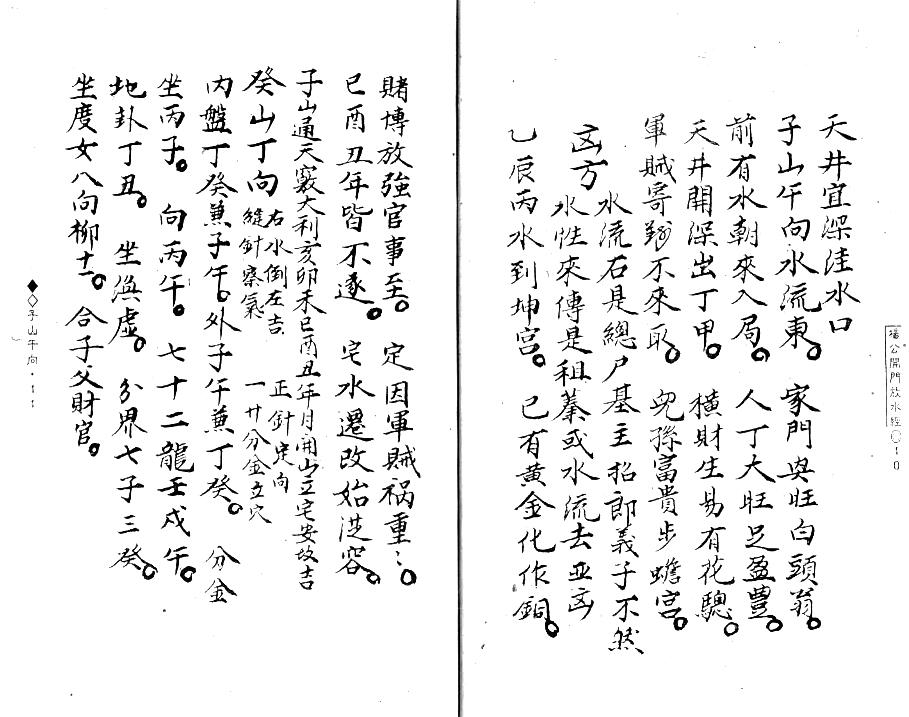 楊公開門放水經〇一〇
天井宜深洼水口
子山午向水流東。家門興旺白頭翁。
前有水朝來入局。人丁大旺足盈豐。
天井開深出丁甲。橫財生易有花驄。
軍賊寄 不來取。兒孫富貴步蟾宮。
水流右是總尸基主招郎義子不然
凶方水性來傳是租 或水流去亚凶
乙辰丙水到坤宮。已有黃金化作銅。
賭博放強官事至。定因軍賊禍重:。
巳酉丑年皆不遂。宅水遷改始從容。
子山通天竅大利亥卯未巳酉丑年月開山立宅安坟吉
癸山丁向 右水倒左吉 正針定向
縫針察氣 一廿分金立穴
內盤丁癸兼子午。外子午兼丁癸。分金
坐丙子。向丙午。七十二龍壬戌午。
地卦丁丑。坐渙虛。分界七子三癸。
坐度女八向柳十一。合子父財官。
子山午向·一一